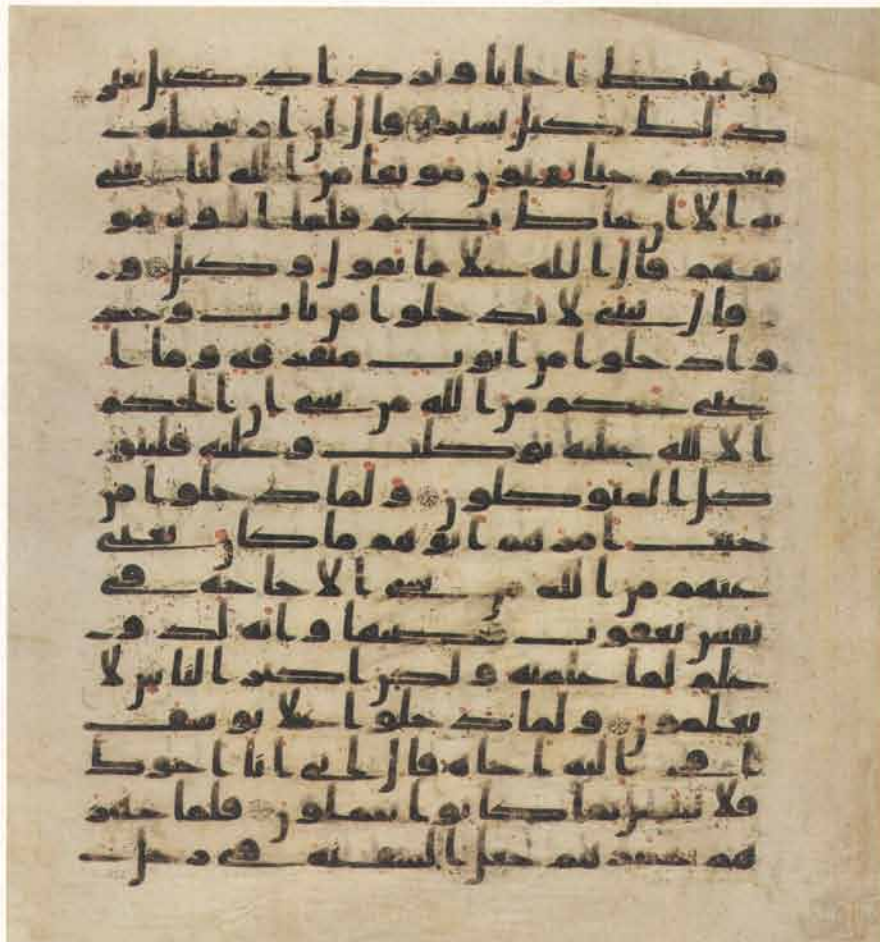 ونحفظ اخانا ونزداد كيل بعير
ذلك كيل يسير قال لن ارسله
معكم حتى توتون موثقا من الله لتاتنني
به الا ان يحاط بكم فلما اتوه مو
ثقهم قال الله علا ما نقول وكيل و
قال يبني لا تدخلوا من باب وحد
وادخلوا من ابوب متفرقة وما ا
غني عنكم من الله من شي ان الحكم
الا لله عليه توكلت وعليه فليتو
كل المتوكلون ولما دخلوا من
حيث امرهم ابوهم ما كان يغني
عنهم من الله من شي الا حاجة في
نفس يعقوب قضيها وانه لذو
علم لما علمنه ولكن اكثر الناس لا
يعلمون ولما دخلوا علا يوسف
اوى اليه اخاه قال اني انا اخوك
فلا تبتئس بما كانوا يعملون فلما جهز
هم بجهزهم جعل السقية في رحل